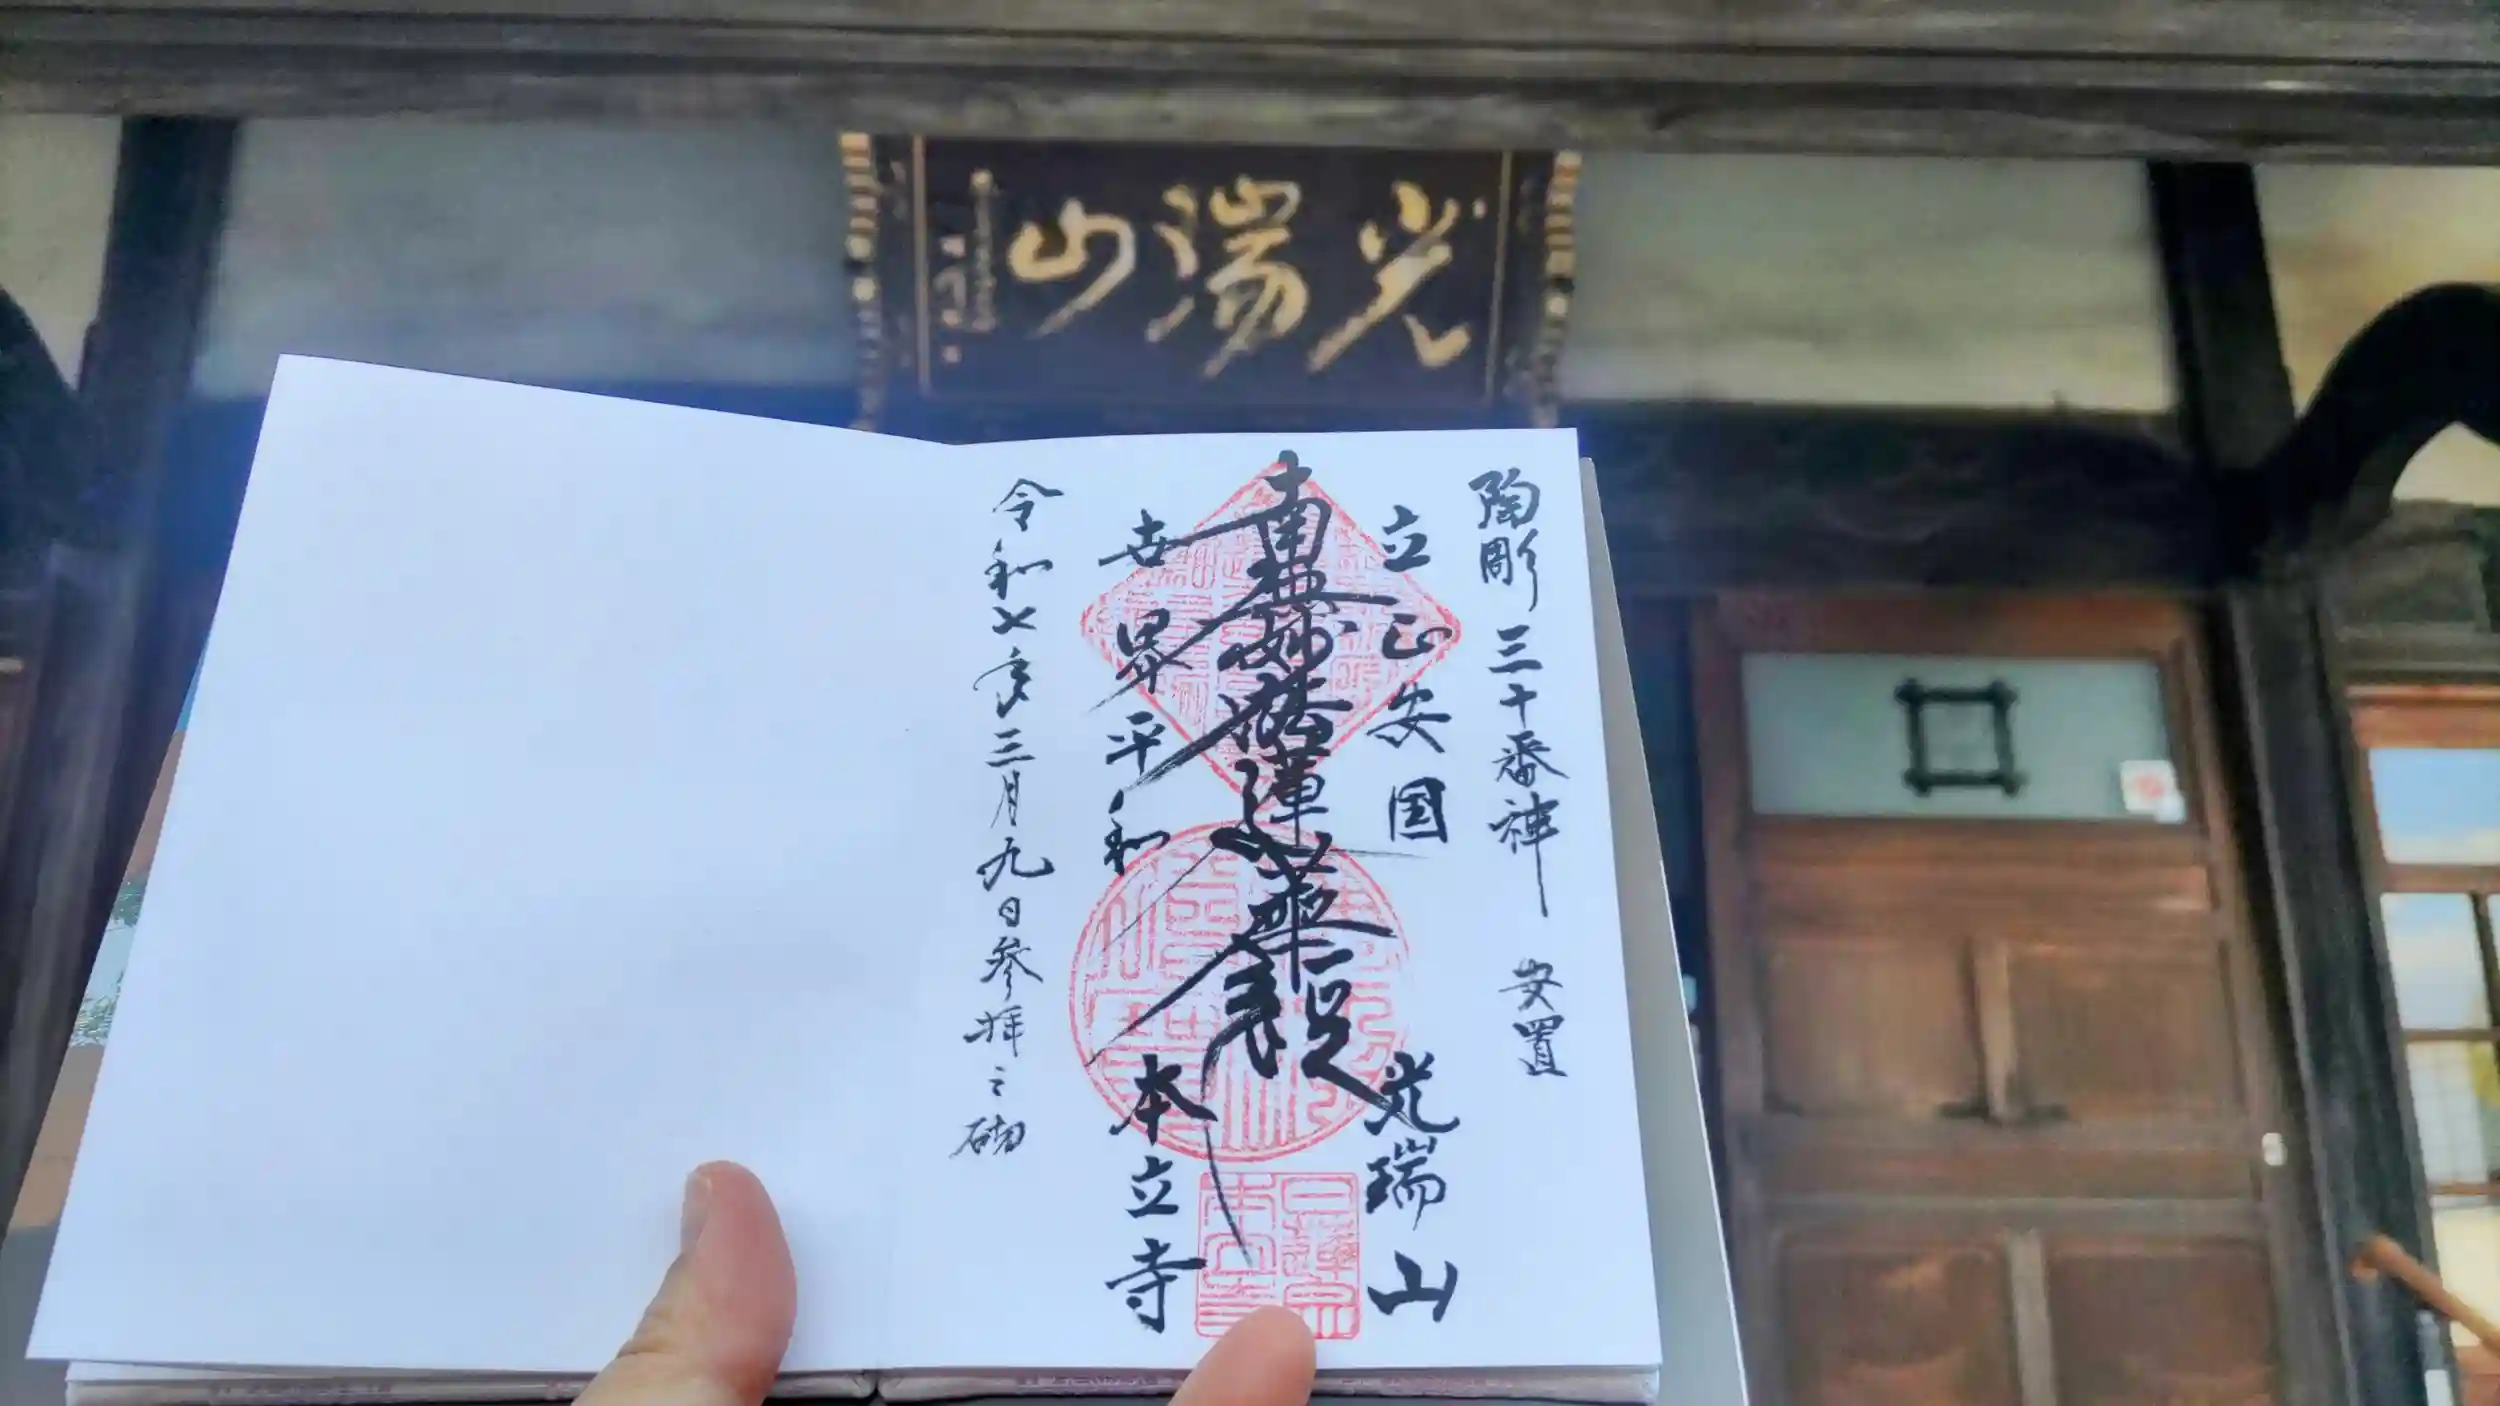 光瑞山
陶彫三十番神 安置
立正安国
光瑞山
南無妙法蓮華経
世界平和
本立寺
令和七年三月九日参拝之砌
日蓮宗
本立寺